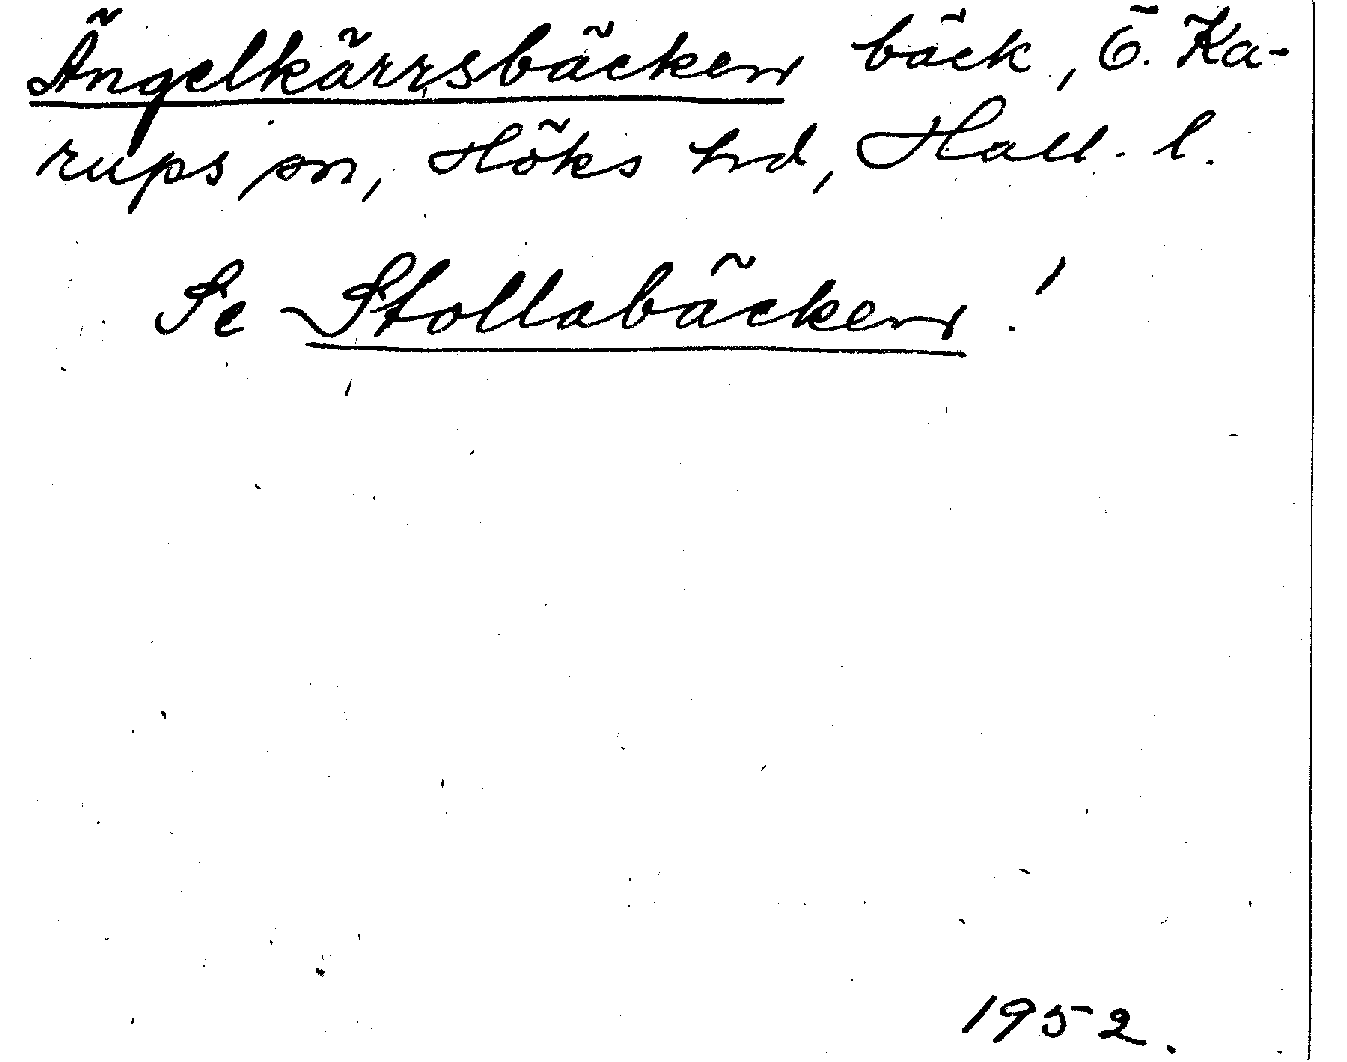 Ängelkärrsbäcken bäck, Ö. Ka-
rups sn, Höks hd, Hall. l.
Se Stollabäcken!
1952.